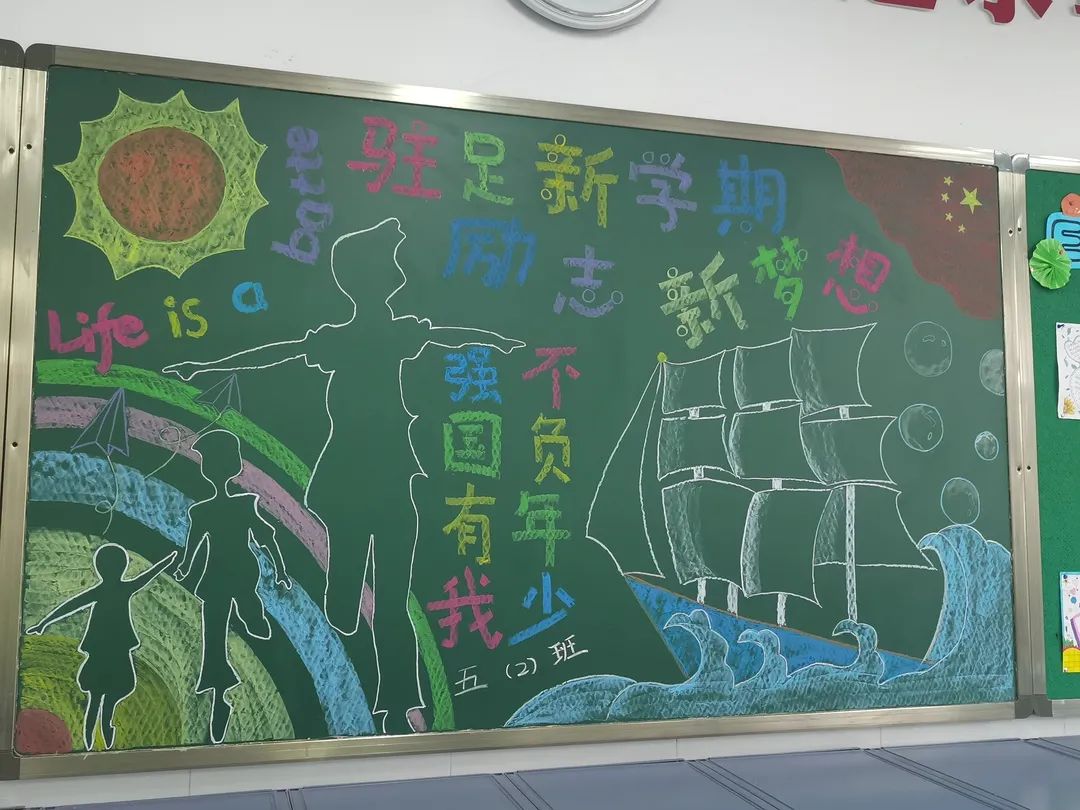 驻足新学期
励志新梦想
Life is a batte
强国有我
不负年少
五（2）班